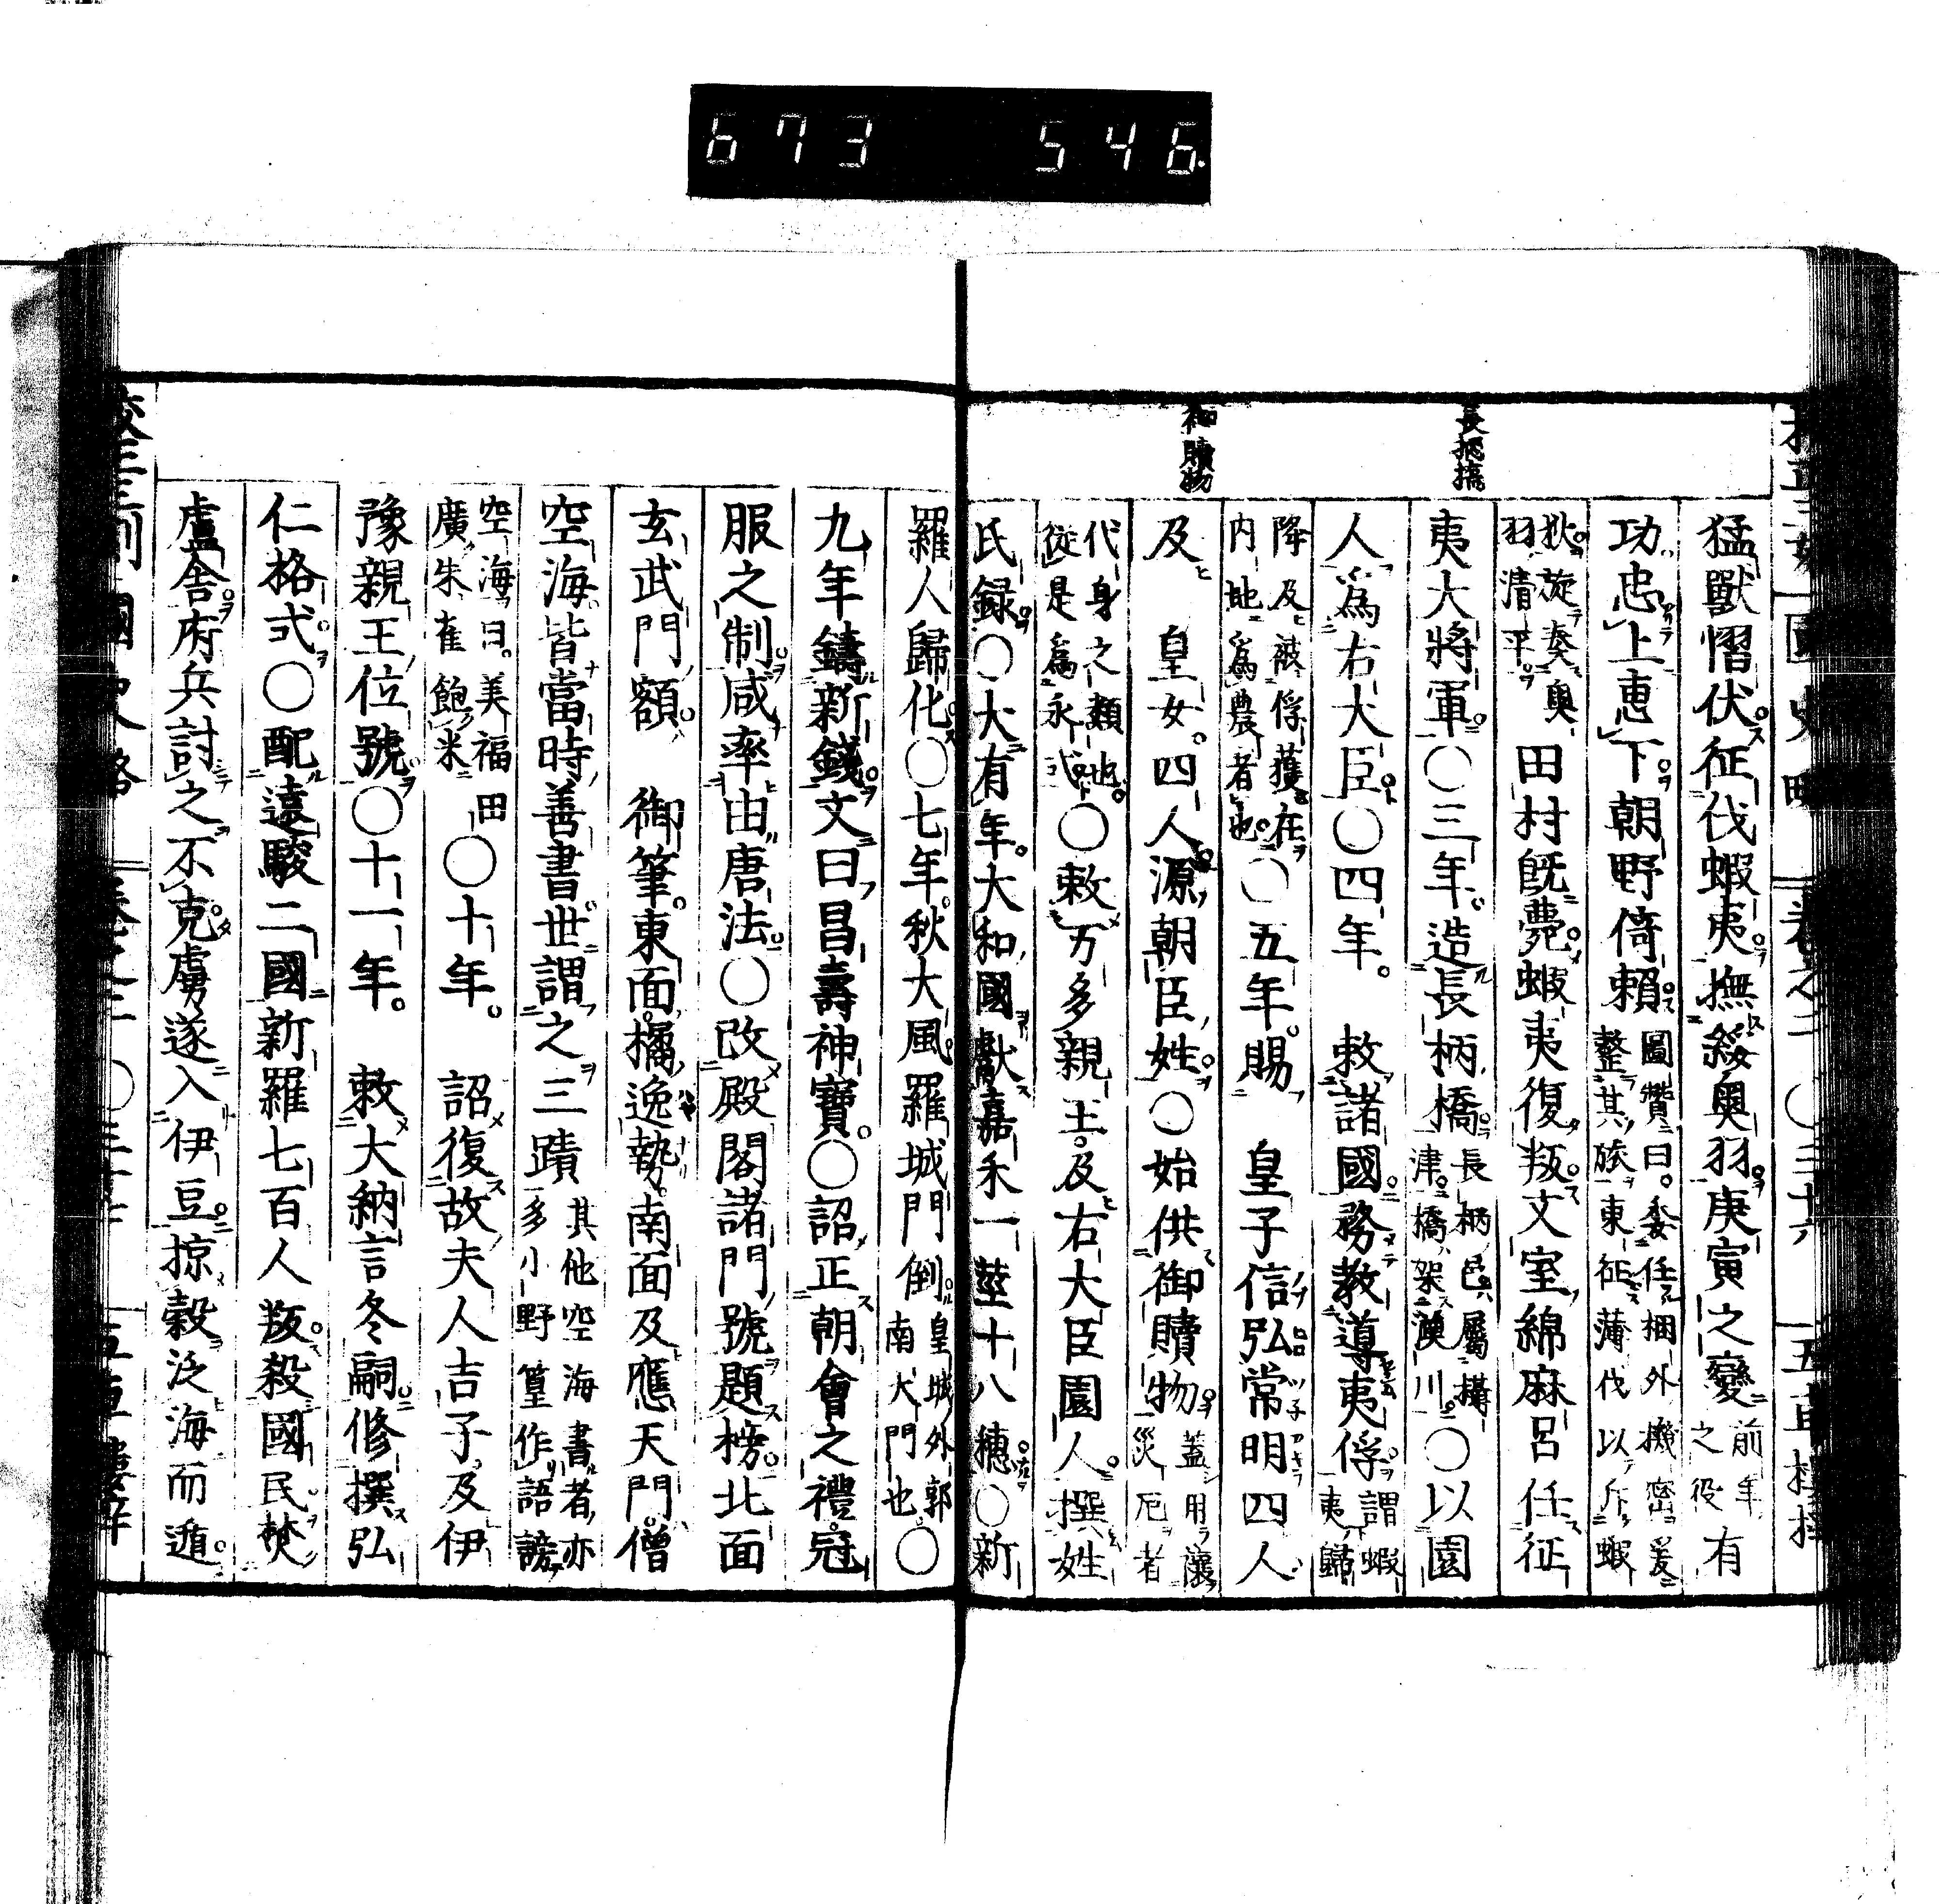 673 546
長柄橋
御贖物
猛獸慴伏征伐蝦夷撫綏奥羽庚寅之變前年之役有
功忠上惠下朝野倚賴圖賛曰委任梱外機密爰整其旅東征薄伐以斥蝦
狄旋奏奥羽清平田村既薨蝦夷復叛文室綿麻呂任征
夷大將軍〇三年造長柄橋長柄邑屬攝津橋架漢川〇以園
人爲右大臣〇四年 敕諸國務教導夷俘謂蝦夷歸
降及被俘獲在内地爲農者也〇五年賜 皇子信弘常明四人
及 皇女四人源朝臣姓〇始供御贖物蓋用禳災厄者
代身之類也從是爲永式〇敕万多親王及右大臣園人撰姓
氏録〇大有年大和國獻嘉禾一莖十八穗〇新
羅人歸化〇七年秋大風羅城門倒皇城外郭南大門也〇
九年鑄新錢文曰昌壽神寶〇詔正朝會之禮冠
服之制咸率由唐法〇改殿閣諸門號題榜北面
玄武門額 御筆東面橘逸勢南面及應天門僧
空海皆當時善書世謂之三蹟其他空海書者亦多小野篁作語謗
空海曰美福田廣朱雀飽米〇十年 詔復故夫人吉子及伊
豫親王位號〇十一年 敕大納言冬嗣修撰弘
仁格式〇配遠駿二國新羅七百人叛殺國民焚
盧舎府兵討之不克虜遂入伊豆掠穀泛海而遁